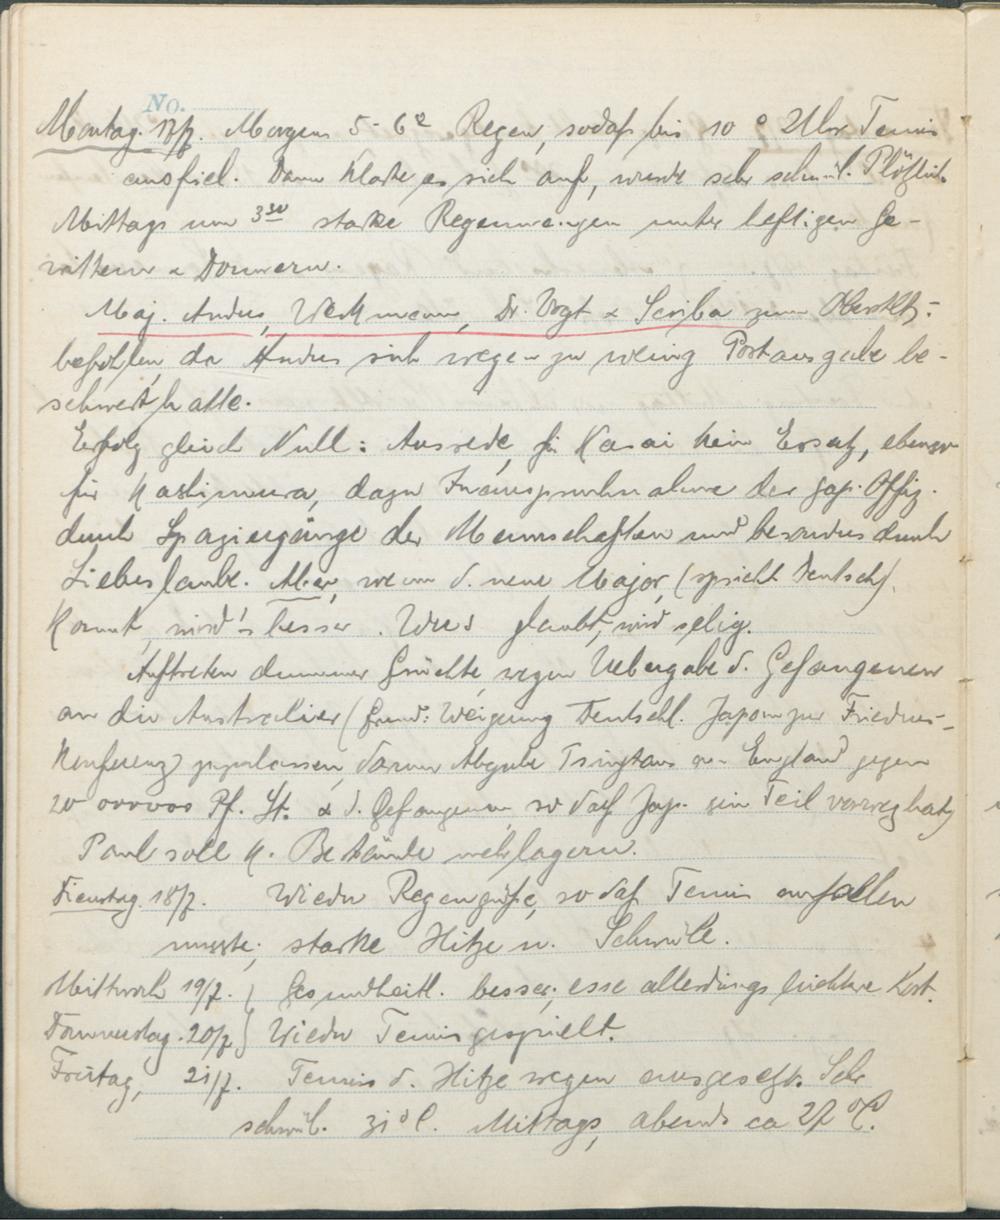 No.
Montag. 17/7. Morgens 5-6 00 Regen, sodaß bis 10 0 Uhr Tennis
ausfiel. Dann klarte es sich auf, wurde sehr schwül. Plötzlich
Mittags um 3 30 starke Regenmengen unter heftigen Ge-
wittern & Donnern.
Maj. Anders, Weckmann, Dr. Vogt & Scriba zum Oberstlt.
befohlen, da Anders sich wegen zu wenig Postausgabe be-
schwert hatte.
Erfolg gleich Null: Ausrede, für Kasai kein Ersatz, ebenso
für Kashimura, dazu Inanspruchnahme der jap. Offiz.
durch Spaziergänge der Mannschaften und besonders durch
Liebeslaube. Aber, wenn d. neue Major, (spricht Deutsch)
kommt, wird's besser. Wer's glaubt, wird selig.
Auftreten dummer Grüchte, wegen Uebergabe d. Gefangenen
an die Australier (Grund: Weigerung Deutschl. Japan zur Friedens-
Konferenz zuzulassen, darum Abgabe Tsingtaus an England gegen
20 000000 Pf. St. & d. Gefangenen, so daß Jap. sein Teil vorweg hat)
Paul soll K. Bestände einlagern.
Dienstag 18/7. Wieder Regengüsse, so daß Tennis ausfallen
musste; starke Hitze u. Schwüle.
Mittwoch 19/7. } Gesundheitl. besser; esse allerdings leichtere Kost.
Donnerstag. 20/7 } Wieder Tennis gespielt.
Freitag, 21/7. Tennis d. Hitze wegen ausgesetzt. Sehr
schwül. 31° C. Mittags, abends ca 27 °C.